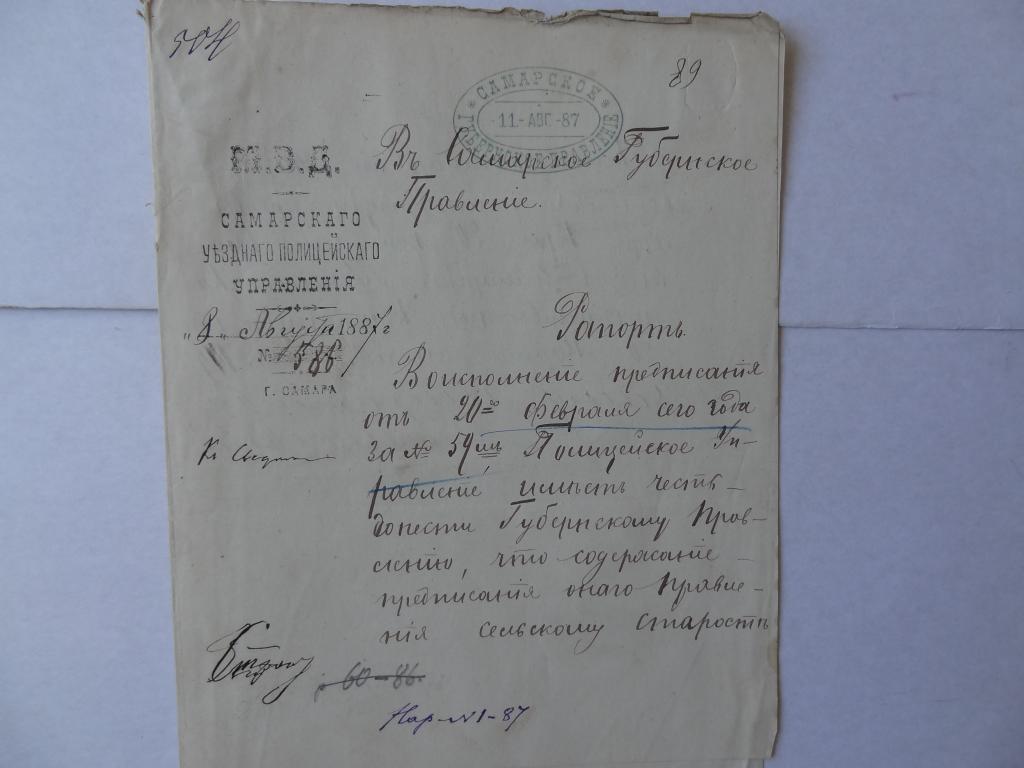 504
89
САМАРСКОЕ
11.-АВГ.-87
ГУБЕРНСКОЕ ПРАВЛЕНІЕ
М.В.Д.
САМАРСКАГО
УѢЗДНАГО ПОЛИЦЕЙСКАГО
УПРАВЛЕНІЯ
"8" Августа 1887 г
№ 586
Г. САМАРА
Къ
Въ Самарское Губернское
Правленіе.
Рапортъ.
Воисполненіе предписанія
отъ 20го февраля сего года
За № 59мъ, Полицейское Уп-
равленіе имѣетъ честь
донести Губернскому Прав-
ленію, что содержаніе
предписанія онаго Правле-
нія сельскому старостѣ
60-86.
№1-87